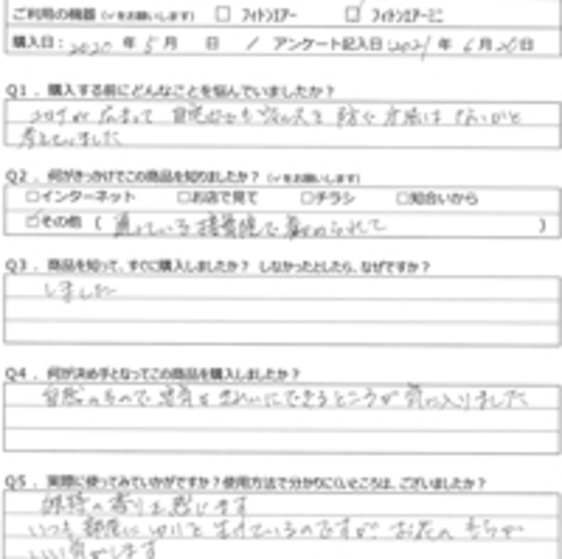 ご利用の機器（✓をお願いします） □ フィトンエアー ☑ フィトンエアーミニ
購入日：2020 年 5 月 日 ／ アンケート記入日：2021 年 6 月 20日
Q1．購入する前にどんなことを悩んでいましたか？
コロナが広まって 自宅 を防ぐ方法はないかと
考えていました
Q2．何がきっかけでこの商品を知りましたか？（✓をお願いします）
□インターネット □お店で見て □チラシ □知合いから
☑その他（ 通っている接骨院で薦められて ）
Q3．商品を知って、すぐに購入しましたか？ しなかったとしたら、なぜですか？
しました
Q4．何が決め手となってこの商品を購入しましたか？
自然のもので空気をきれいにできるところが気に入りました
Q5．実際に使ってみていかがですか？使用方法で分かりにくいところは、ございましたか？
香りを感じます
いつも部屋に を生けているのですが、お花のもちが
いい気がします